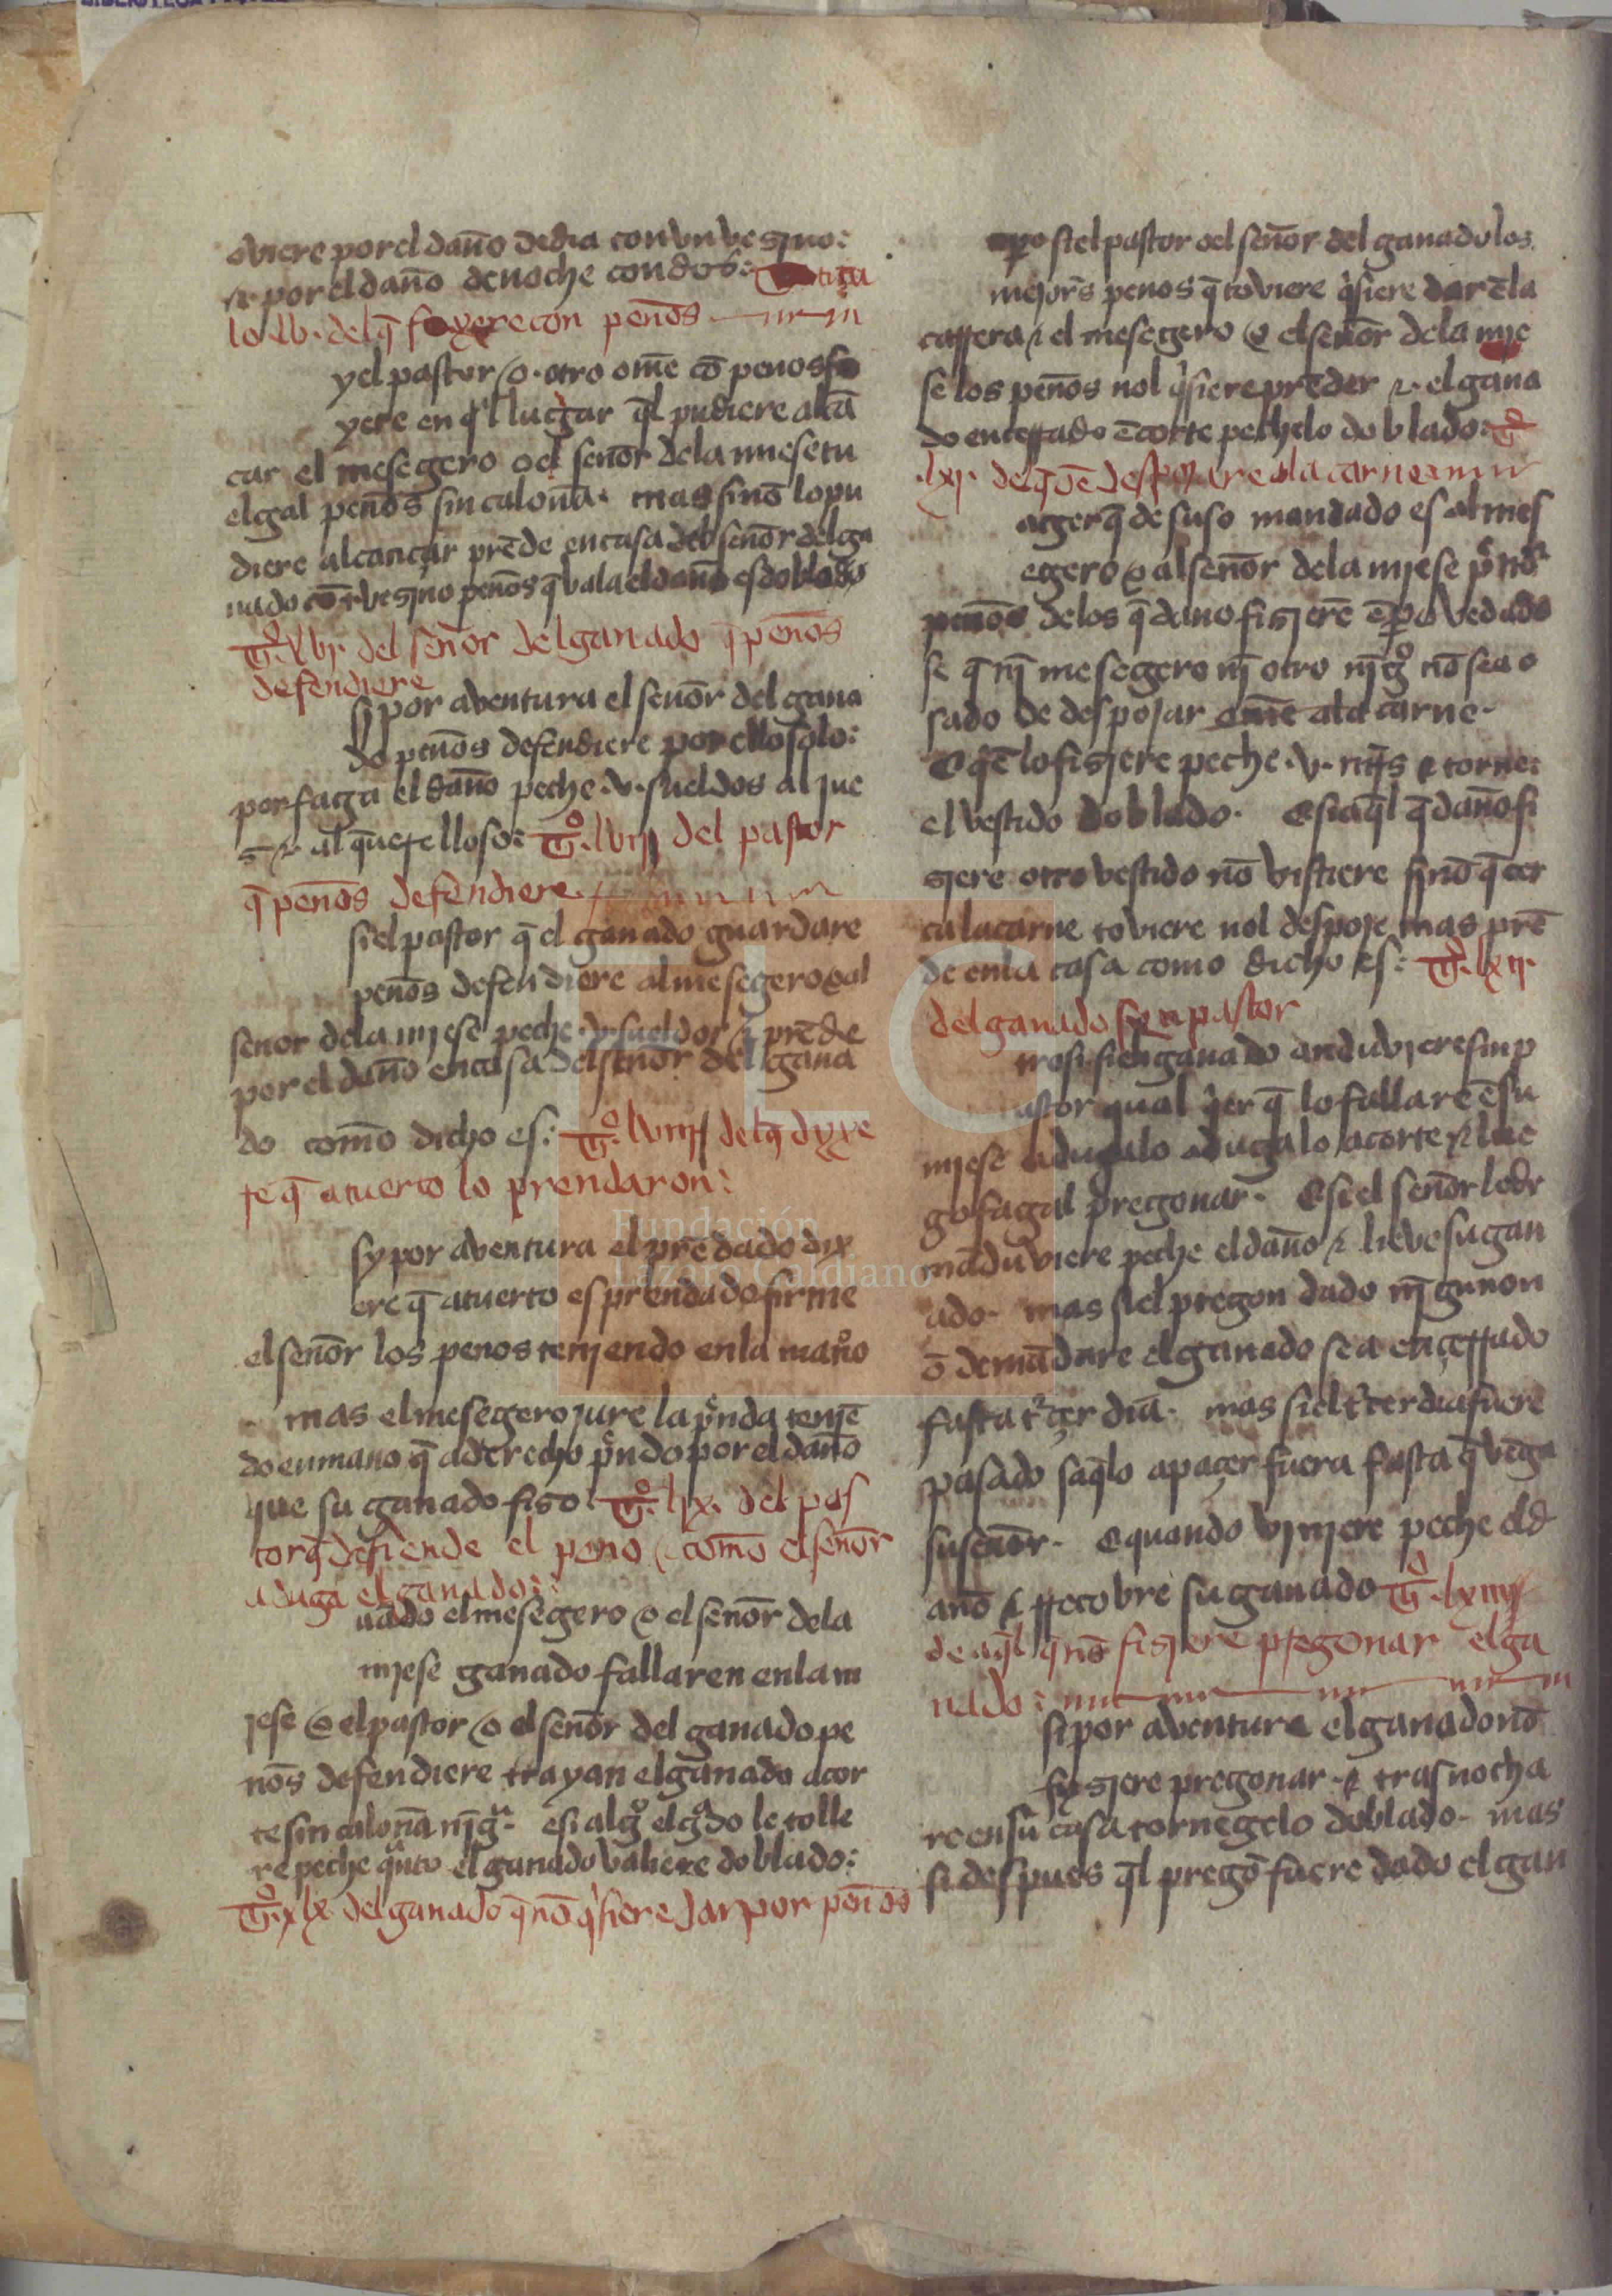 oviere por el dan̄o de dia con vn vesjno:
⁊ por el dan̄o de noche con dos: titu
lo lv. del q̄ foyere con pen̄os
y el pastor / o · otro om̄e cō penos fo
yere en q̄l lugar q̄l pudiere alcā
çar el mesegero o el sen̄or dela miese tu
elgal pen̄os sin calon̄a · mas sinō lo pu
diere alcançar prēde en casa del sen̄or del ga
nado cō vesjno pen̄os q̄ vala el dan̄o es doblado
Tº. lvj. del sen̄or del ganado q̄ pen̄os
defendiere
Sy por aventura el sen̄or del gana
do pen̄os defendiere por ello solo:
por faga el dan̄o peche · v · sueldos al jue
z ⁊ al q̄relloso: Tº. lvij del pastor
q̄ pen̄os defendiere
si el pastor q̄ el ganado guardare
pen̄os defendiere al mesegero o al
sen̄or dela mjese peche · v · sueldos ⁊ prēde
por el dan̄o en casa del sen̄or del gana
do com̄o dicho es: Tº. lviij del q̄ dyxe
re q̄ a tuerto lo prendaron:
sy por aventura el prēdado dix
ere q̄ a tuerto es prendado firme
el sen̄or los penos tenjendo en la mano
mas el mesegero jure la pͥnda tenjē
do en mano q̄ a derecho pͥndo por el dan̄o
que su ganado fiso Tº. lix. del pas
tor q̄ defiende el peno ⁊ com̄o el sen̄or
aduga el ganado:
uādo el mesegero o el sen̄or dela
mjese ganado fallaren en la m
jese o el pastor / o el sen̄or del ganado pe
nōs defendiere trayan el ganado a cor
te sin calon̄a nj̄gᵃ · e si algº el gᵃdo le tolle
re peche qᵃnto el ganado valiere doblado:
Tº. lx. del ganado q̄ nō qͥsiere dar por pen̄os
ꝑo si el pastor o el sen̄or del ganado los
mejor̄s penos q̄ toviere qͥsiere dar ē la
carrera ⁊ el mesegero o el sen̄or dela mje
se los pen̄os nol qͥsiere prēder ⁊ el gana
do encerrado ē corte pechelo doblado: Tº
.lxj. de quē despojare ala carne
a çer q̄ de suso mandado es al mes
egero o al sen̄or dela mjese
pen̄os delos q̄ dano fisjerē ēꝑo vedado
se q̄ nj̄ mesegero nj̄ otro nj̄gº nō sea o
sado de despojar om̄e ala carne ·
E qͥē lo fisjere peche · v · mr̄s ⁊ torne:
el vestido doblado · E si aq̄l q̄ dan̄o fi
sjere otro vestido nō vistiere sinō q̄ cer
ca la carne toviere nol despoje mas prē
de en la casa como dicho es: Tº. lxij.
del ganado syn pastor
trosi si el ganado anduvjere sin p
astor qual qͥer q̄ lo fallare ē su
mjese adugalo adugalo a corte ⁊ lue
go fagal pregonar · E si el sen̄or le de
māduviere peche el dan̄o ⁊ lieve su gan
ado · mas si el pregon dado nj̄guno n
ō demādare el ganado sea ençerrado
fasta tͤrçer dia · mas si el tͤrçer dia fuere
pasado saq̄lo a paçer fuera fasta q̄ vēga
su sen̄or · E quando vinjere peche el d
an̄o ⁊ rrecobre su ganado Tº. lxiij
de aq̄l q̄ nō fisjere pregonar el ga
nado:
si por aventura el ganado nō
fysjere pregonar · ⁊ trasnocha
re en su casa tornegelo doblado · mas
si despues q̄l pregō fuere dado el gan